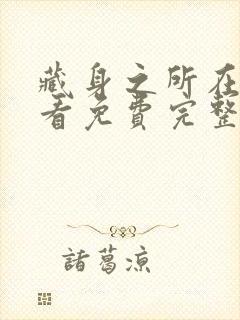 藏身之所在
看免費完整
諸葛涼